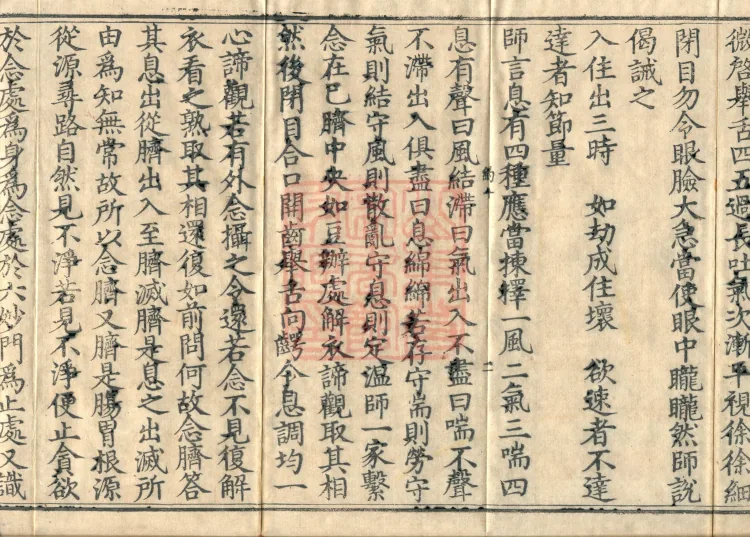 微啓舉舌四五過長吐氣次漸平視徐徐細
閉目勿令眼瞼大急當使眼中矓矓然師説
偈誡之
入住出三時　如劫成住壞　欲速者不達
達者知節量
師言息有四種應當揀擇一風二氣三喘四
息有聲曰風結滯曰氣出入不盡曰喘不聲
不滯出入俱盡曰息綿綿若存守喘則勞守
氣則結守風則散亂守息則定溫師一家繫
念在已臍中央如豆辦處解衣諦觀取其相
然後閉目合口開齒舉舌向齶令息調均一
心諦觀若有外念攝之令還若念不見復解
衣看之熟取其相還復如前問何故念臍答
其息出從臍出入至臍滅臍是息之出滅所
由爲知無常故所以念臍又臍是腸胃根源
從源尋路自然見不淨若見不淨便止貪欲
於念處爲身爲念處於六妙門爲止處又識